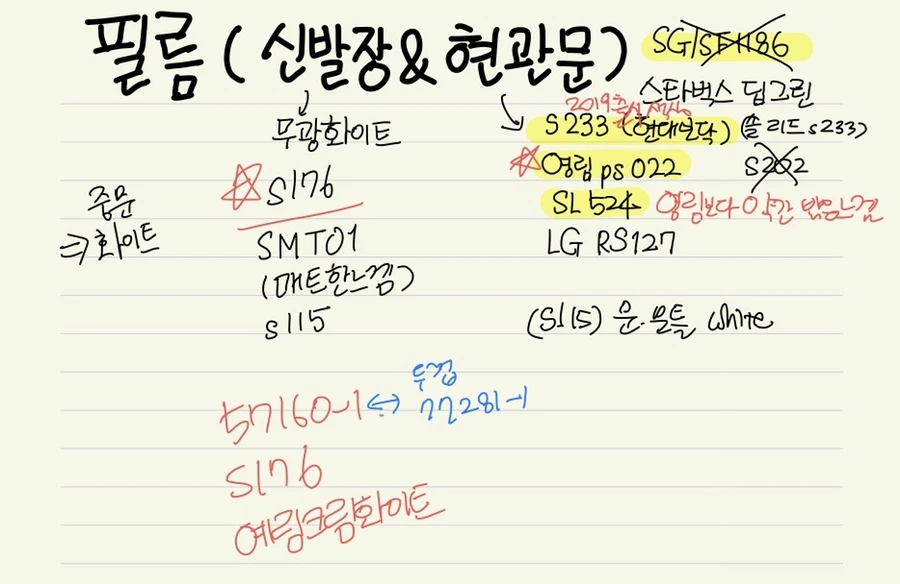 필름 ( 신발장 & 현관문 )
SG/SF1186
스타벅스 딥그린
무광화이트
2019 출시 색상
S233 (현대보닥) (솔리드 s233)
S176
영림 ps 022
S202
중문
⇒ 화이트
SL 524 영림보다 약간 밝은느낌
SMT01
LG RS127
(매트한느낌)
S115
(S115) 문.문틀 white
57160-1 ↔ 두껍 77281-1
S176
예림크림화이트